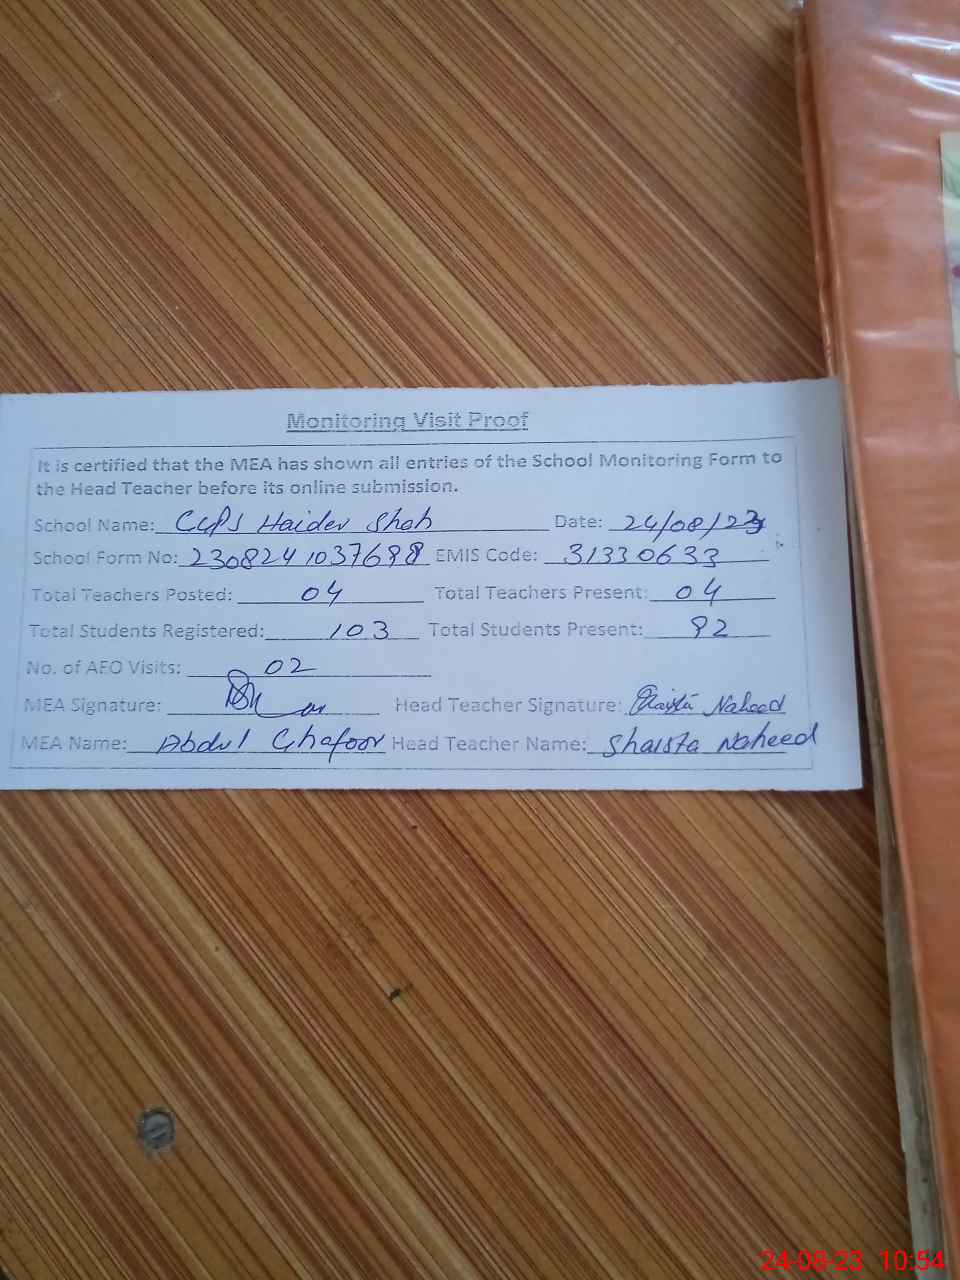 Monitoring Visit Proof
It is certified that the MEA has shown all entries of the School Monitoring Form to
the Head Teacher before its online submission.
School Name: Haider Shah Date: 24/08/23
School Form No: EMIS Code: 31330633
Total Teachers Posted: 04 Total Teachers Present: 04
Total Students Registered: 103 Total Students Present: 92
No. of AEO Visits: 02
MEA Signature: Head Teacher Signature: Shaista Naheed
MEA Name: Abdul Ghafoor Head Teacher Name: Shaista Naheed
24-08-23 10:54